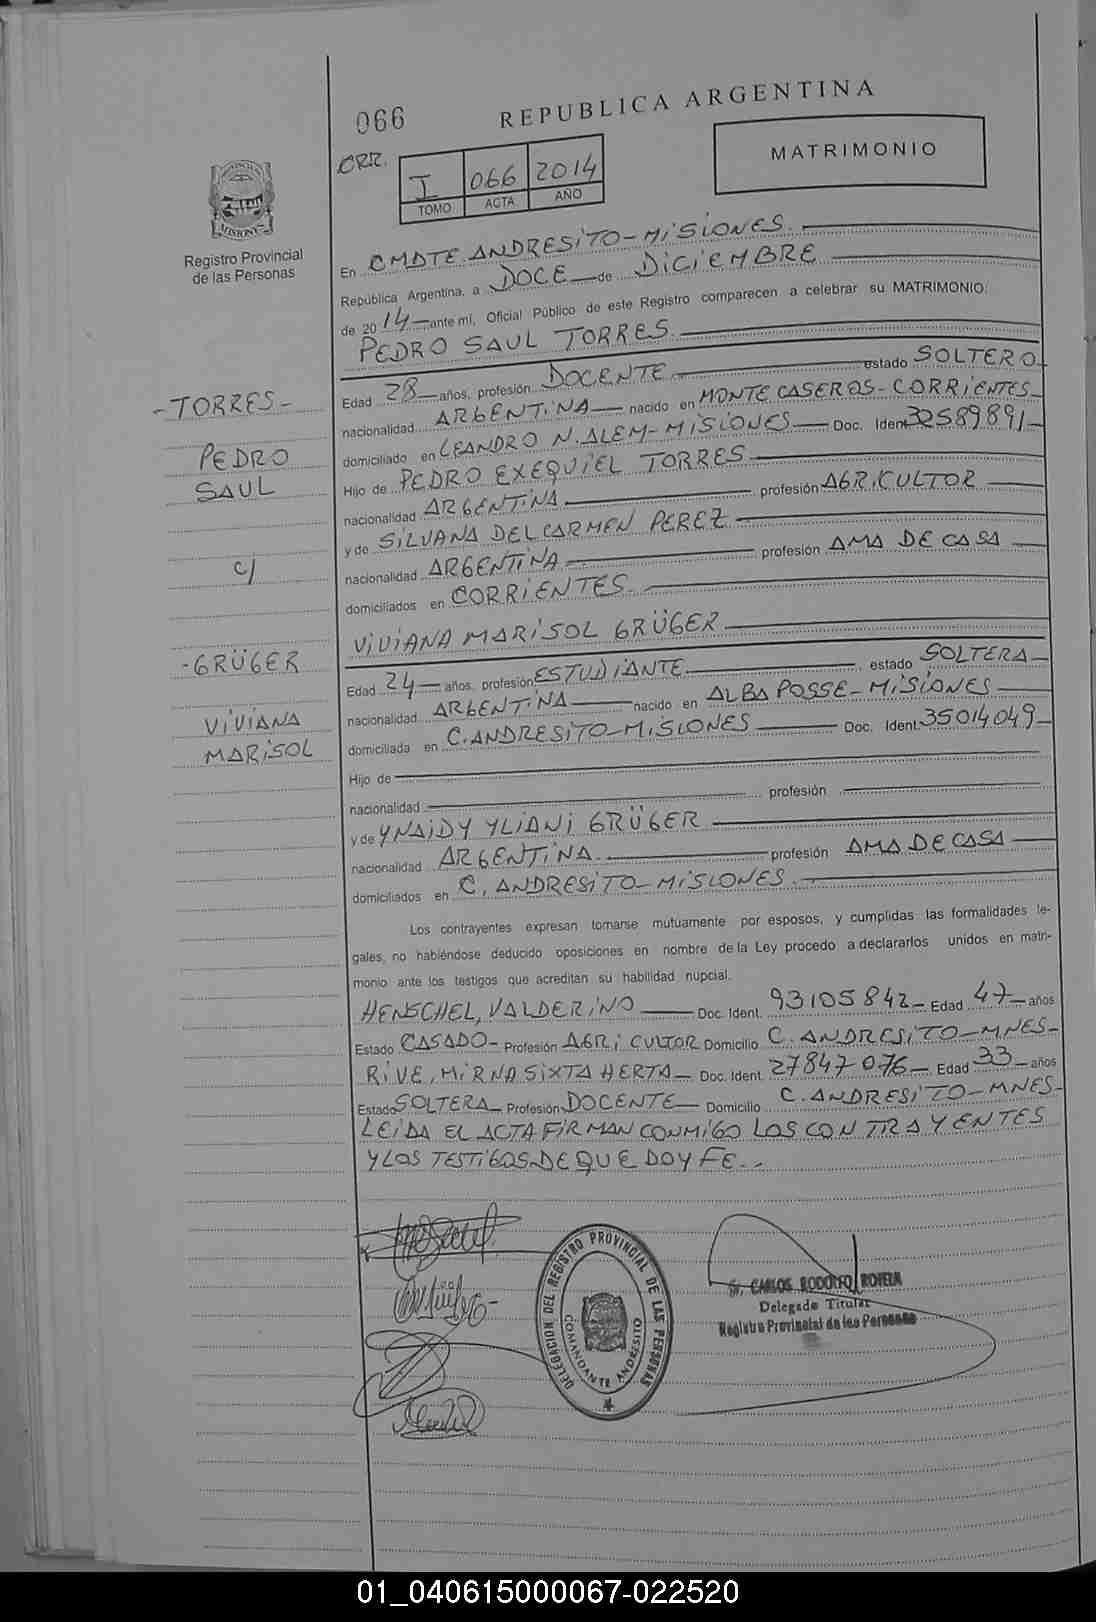 066 REPUBLICA ARGENTINA
CRR.
I 066 2014
TOMO ACTA AÑO
MATRIMONIO
MISIONES
Registro Provincial
de las Personas
En CMDTE ANDRESITO-MISIONES.
República Argentina, a DOCE de DICIEMBRE
de 2014 ante mí, Oficial Público de este Registro comparecen a celebrar su MATRIMONIO:
PEDRO SAUL TORRES.
Edad 28 años, profesión DOCENTE estado SOLTERO
-TORRES-
nacionalidad ARGENTINA nacido en MONTE CASEROS-CORRIENTES
domiciliado en LEANDRO N. ALEM-MISIONES Doc. Ident. 32589891
PEDRO
Hijo de PEDRO EXEQUIEL TORRES
SAUL
nacionalidad ARGENTINA profesión AGRICULTOR
y de SILVANA DEL CARMEN PEREZ
c/
nacionalidad ARGENTINA profesión AMA DE CASA
domiciliados en CORRIENTES.
VIVIANA MARISOL GRÜGER
-GRÜGER
Edad 24 años, profesión ESTUDIANTE estado SOLTERA
nacionalidad ARGENTINA nacido en ALBA POSSE-MISIONES
VIVIANA
domiciliada en C. ANDRESITO-MISIONES Doc. Ident. 35014049
MARISOL
Hijo de
nacionalidad profesión
y de YNAIDY YLIANI GRÜGER
nacionalidad ARGENTINA profesión AMA DE CASA
domiciliados en C. ANDRESITO-MISIONES.
Los contrayentes expresan tomarse mutuamente por esposos, y cumplidas las formalidades le-
gales, no habiéndose deducido oposiciones en nombre de la Ley procedo a declararlos unidos en matri-
monio ante los testigos que acreditan su habilidad nupcial.
HENSCHEL, VALDERINO Doc. Ident. 93105842 Edad 47 años
Estado CASADO- Profesión AGRICULTOR Domicilio C. ANDRESITO-MNES-
RIVE, MIRNA SIXTA HERTA Doc. Ident. 27847076 Edad 33 años
Estado SOLTERA Profesión DOCENTE Domicilio C. ANDRESITO-MNES-
LEIDA EL ACTA FIRMAN CONMIGO LOS CONTRAYENTES
Y LOS TESTIGOS DE QUE DOY FE.-
DELEGACION DEL REGISTRO PROVINCIAL DE LAS PERSONAS
COMANDANTE ANDRESITO
Sr. CARLOS RODOLFO ROVERA
Delegado Titular
Registro Provincial de las Personas
01_040615000067-022520